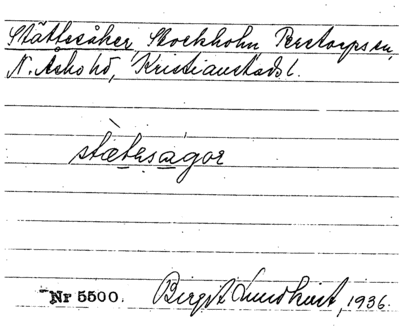 Stättesåker, Stockholm Perstorps sn,
N. Åsbo hd, Kristianstads l.
stæt​esågor
Nr 5500. Birgit Lundkvist, 1936.